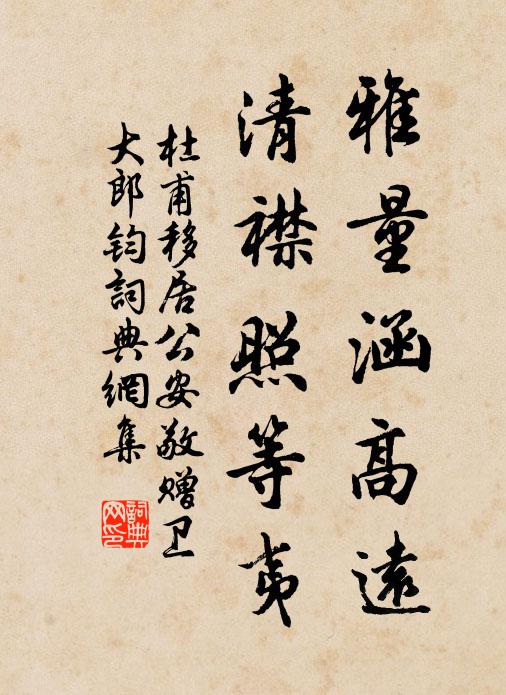 雅量涵高遠
清襟照等夷
杜甫移居公安敬赠卫
大郎钧詞典網集
詞典
网印